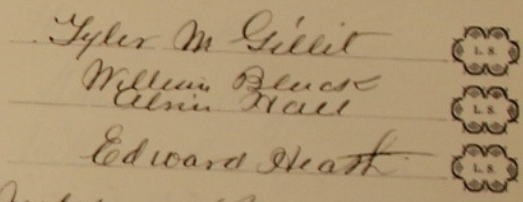 Tyler M Gillit L. S.
William Black
Alvin Hall L. S.
Edward Heath L. S.